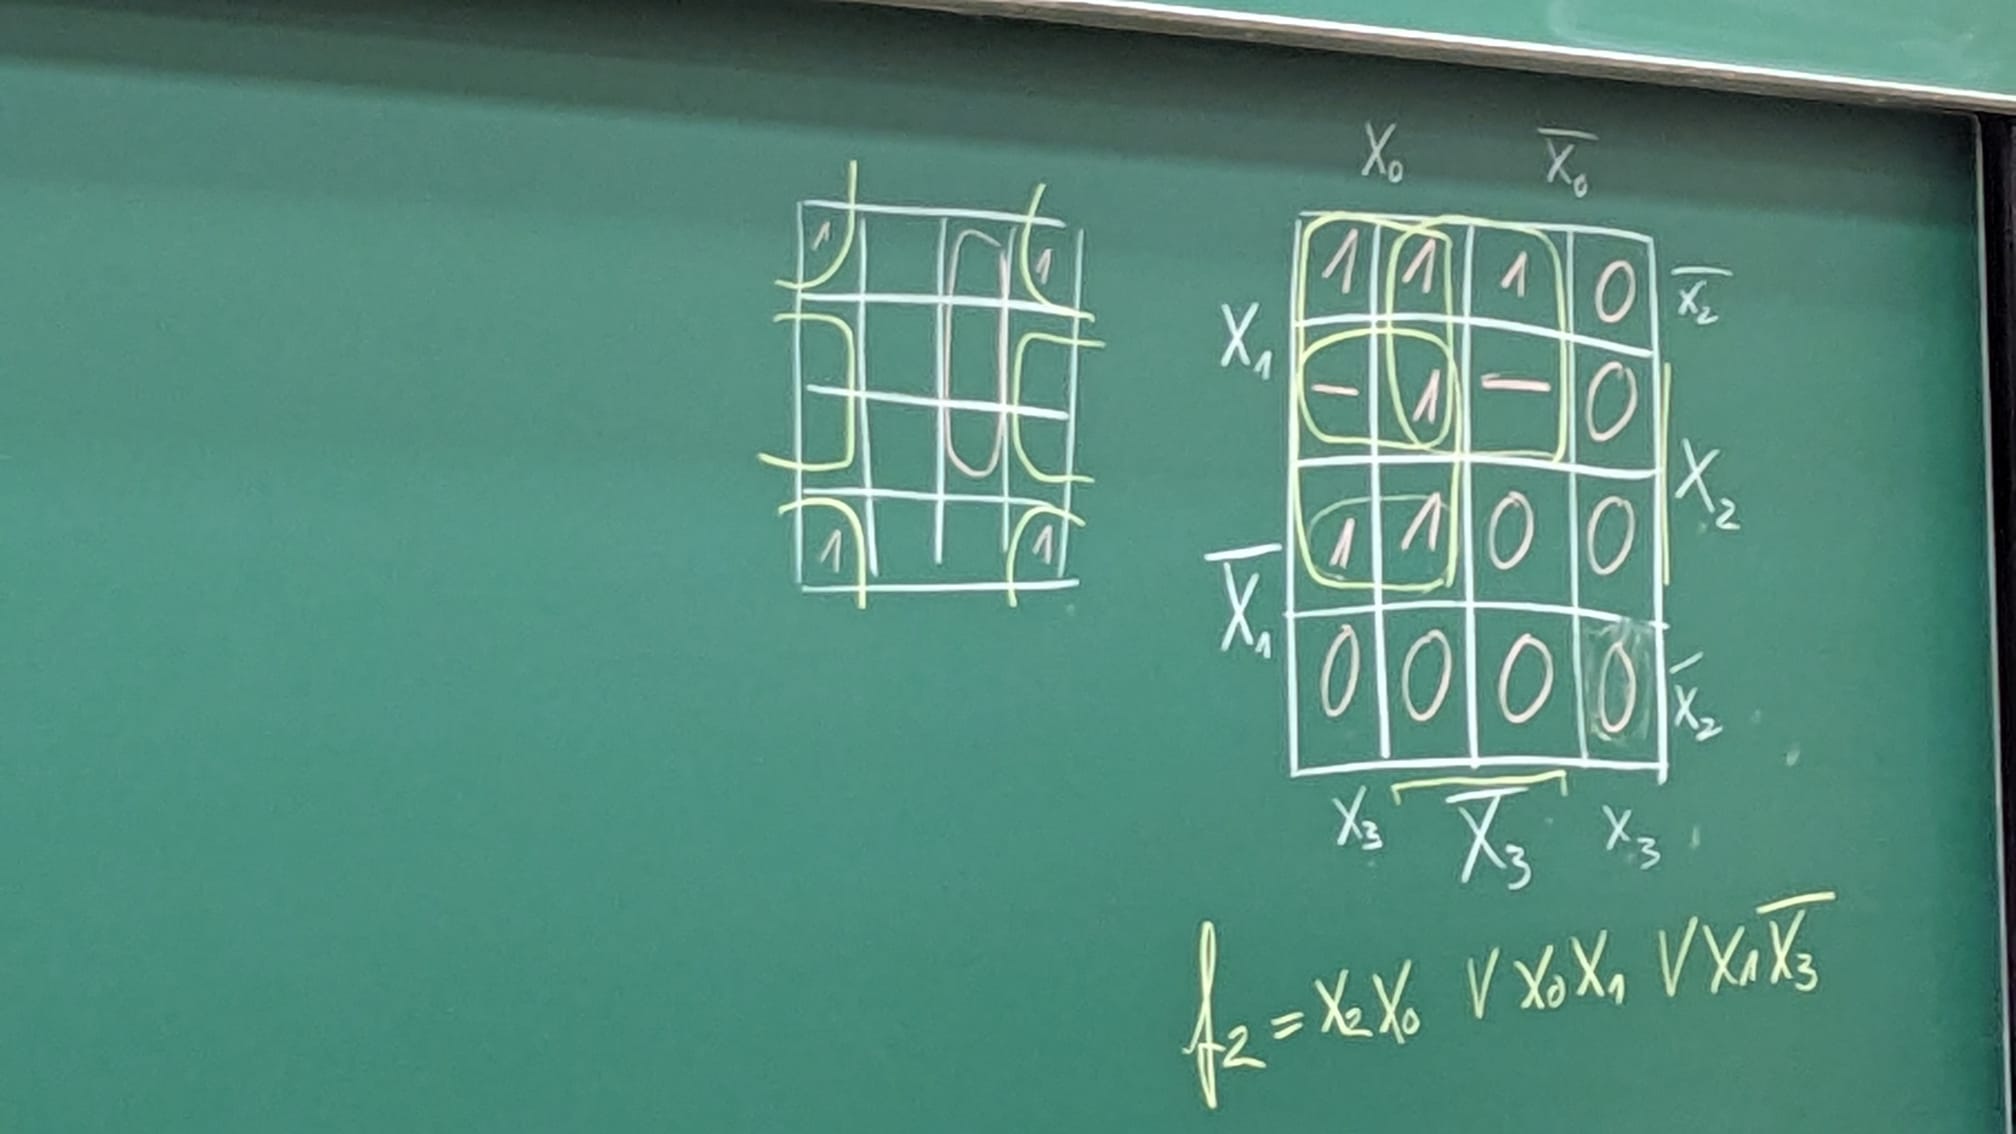 1 1
1 1
X₀ X̅₀
1 1 1 0 X̅₂
X₁
— 1 — 0
X₂
1 1 0 0
X̅₁
0 0 0 0 X̅₂
X₃ X̅₃ X₃
f₂ = X₂X₀ ∨ X₀X₁ ∨ X₁X̅₃